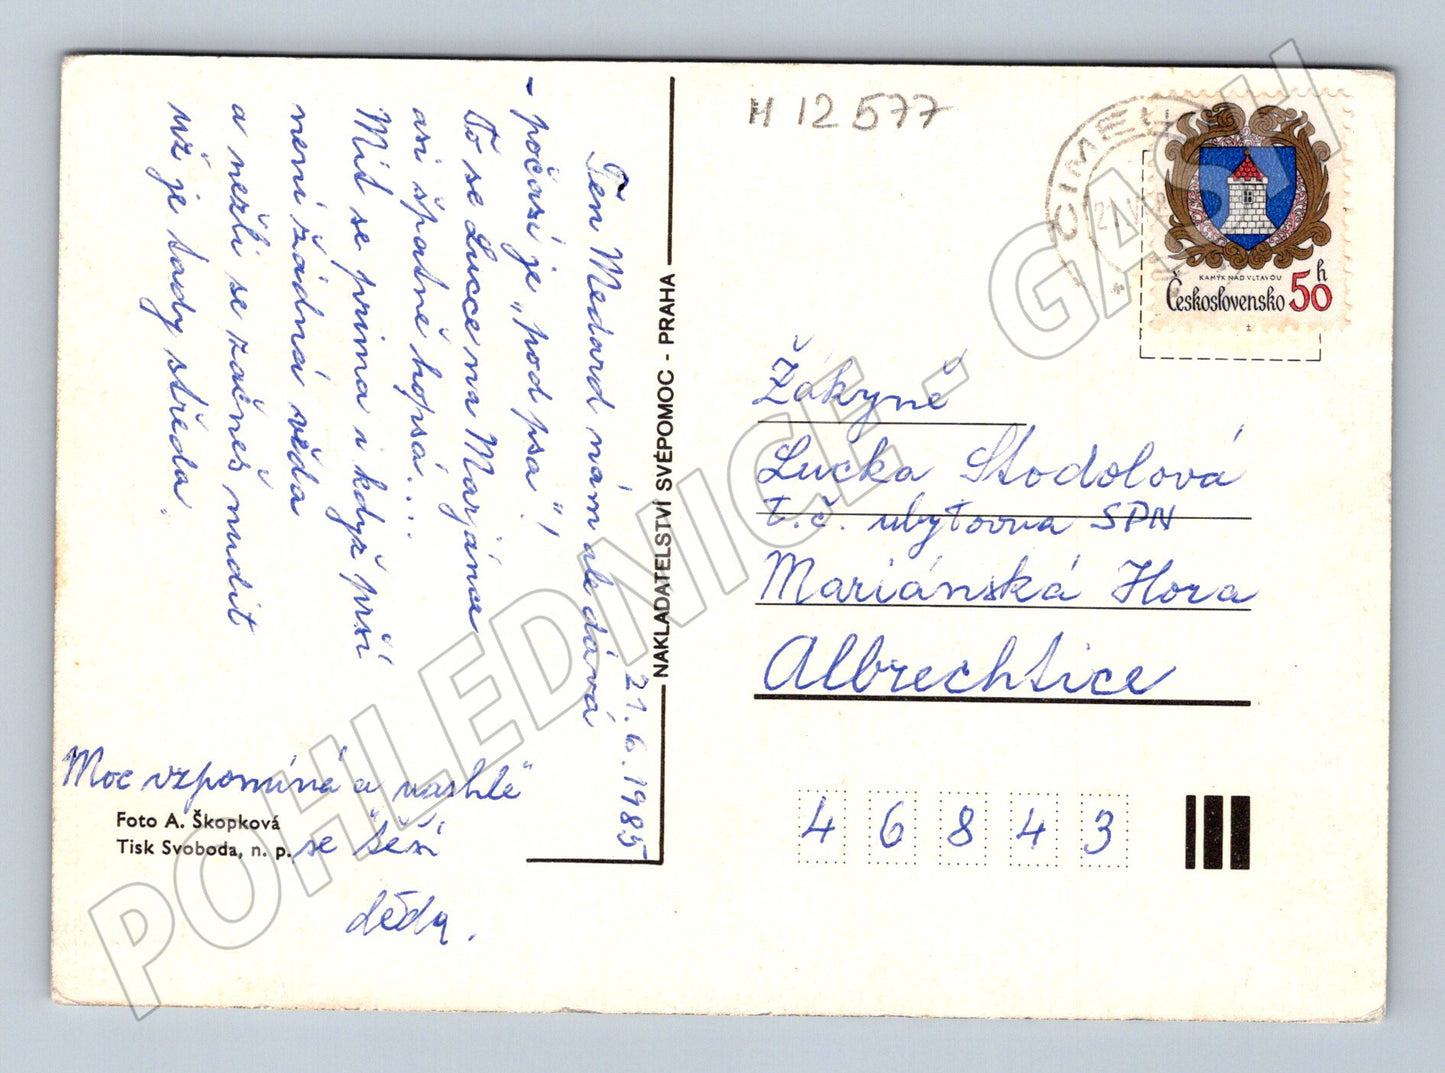 21. 6. 1985
Ten Medard nám ale dává
- počasí je „pod psa"!
To se Lucce na Marjánce
ani špatně hopsá...
Mít se prima i když prší
není žádná věda
a nežli se začneš nudit
už je tady středa.
Moc vzpomíná a „nashle"
se těší
děda.
Foto A. Škopková
Tisk Svoboda, n. p.
NAKLADATELSTVÍ SVÉPOMOC - PRAHA
H 12 577
ČIMEL
KAMÝK NAD VLTAVOU
Československo 50 h
Žákyně
Lucka Stodolová
t.č. ubytovna SPN
Mariánská Hora
Albrechtice
4 6 8 4 3
POHLEDNICE - GASH